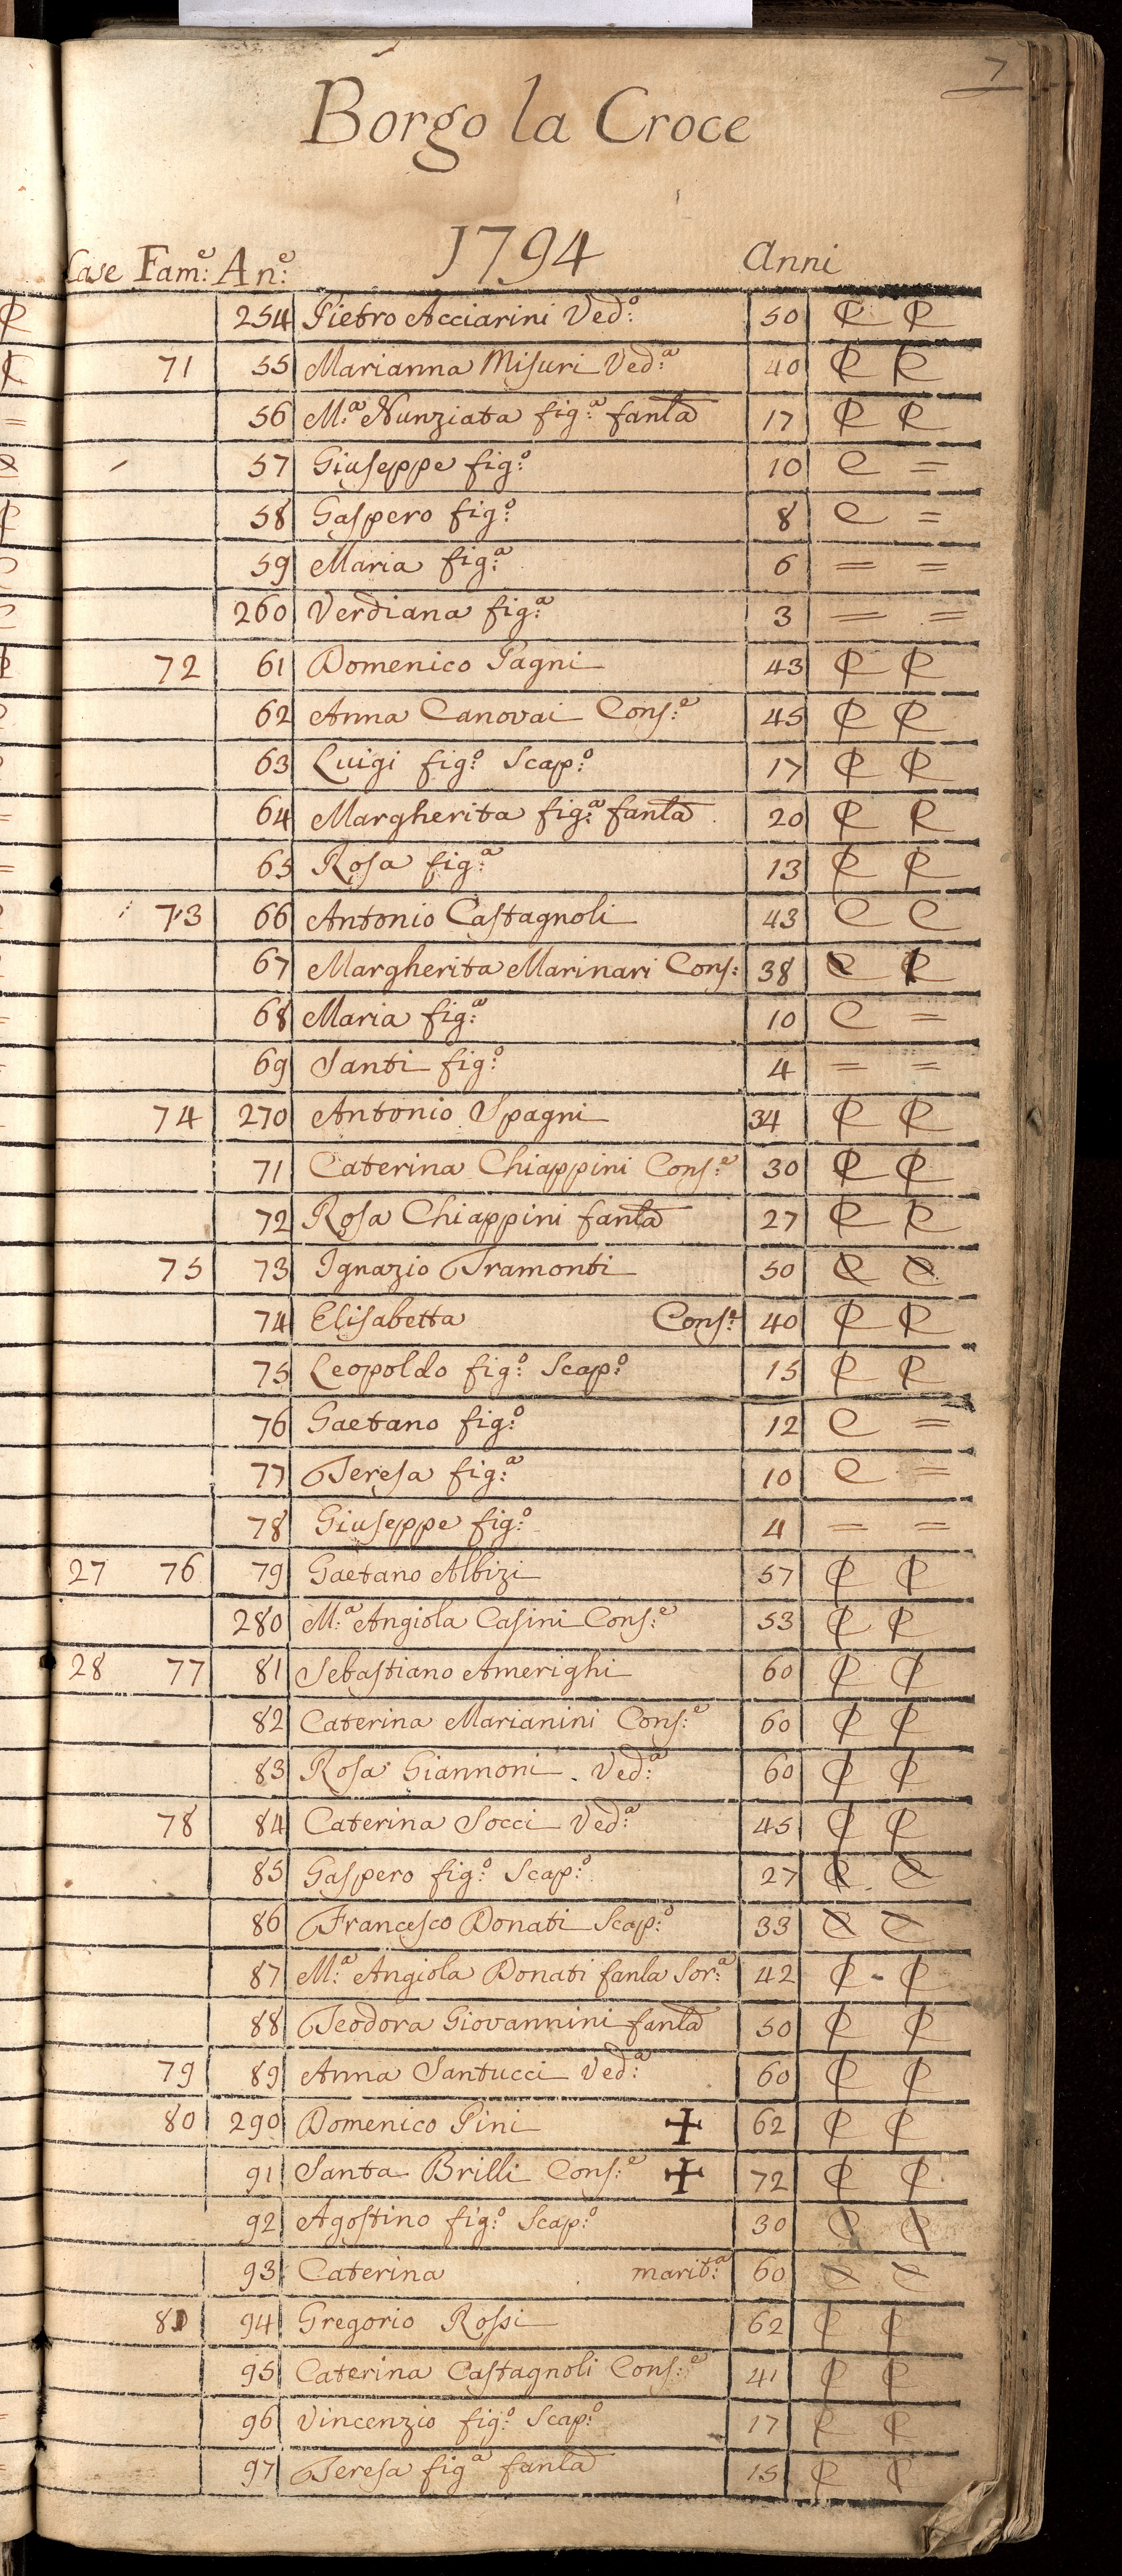 7
Borgo la Croce
1794
Case Fam.e An.e Anni
254 Pietro Acciarini Ved:o 50 C C
71 55 Marianna Misuri Ved:a 40 C C
56 M:a Nunziata fig:a fanla 17 C C
57 Giuseppe fig:o 10 C =
58 Gaspero fig:o 8 C =
59 Maria fig:a 6 = =
260 Verdiana fig:a 3 = =
72 61 Domenico Pagni 43 C C
62 Anna Canovai Cons:e 45 C C
63 Luigi fig:o Scap:o 17 C C
64 Margherita fig:a fanla 20 C C
65 Rosa fig:a 13 C C
73 66 Antonio Castagnoli 43 C C
67 Margherita Marinari Cons: 38 C C
68 Maria fig:a 10 C =
69 Santi fig:o 4 = =
74 270 Antonio Spagni 34 C C
71 Caterina Chiappini Cons:e 30 C C
72 Rosa Chiappini fanla 27 C C
75 73 Ignazio Tramonti 50 C C
74 Elisabetta Cons:e 40 C C
75 Leopoldo fig:o Scap:o 15 C C
76 Gaetano fig:o 12 C =
77 Teresa fig:a 10 C =
78 Giuseppe fig:o 4 = =
27 76 79 Gaetano Albizi 57 C C
280 M:a Angiola Casini Cons:e 53 C C
28 77 81 Sebastiano Amerighi 60 C C
82 Caterina Marianini Cons:e 60 C C
83 Rosa Giannoni Ved:a 60 C C
78 84 Caterina Socci Ved:a 45 C C
85 Gaspero fig:o Scap:o 27 C C
86 Francesco Donati Scap:o 33 C C
87 M:a Angiola Donati fanla Sor:a 42 C - C
88 Teodora Giovannini fanla 50 C C
79 89 Anna Santucci Ved:a 60 C C
80 290 Domenico Pini + 62 C C
91 Santa Brilli Cons:e + 72 C C
92 Agostino fig:o Scap:o 30 C C
93 Caterina marit:a 60 C C
81 94 Gregorio Rossi 62 C C
95 Caterina Castagnoli Cons:e 41 C C
96 Vincenzio fig:o Scap:o 17 C C
97 Teresa fig:a fanla 15 C C